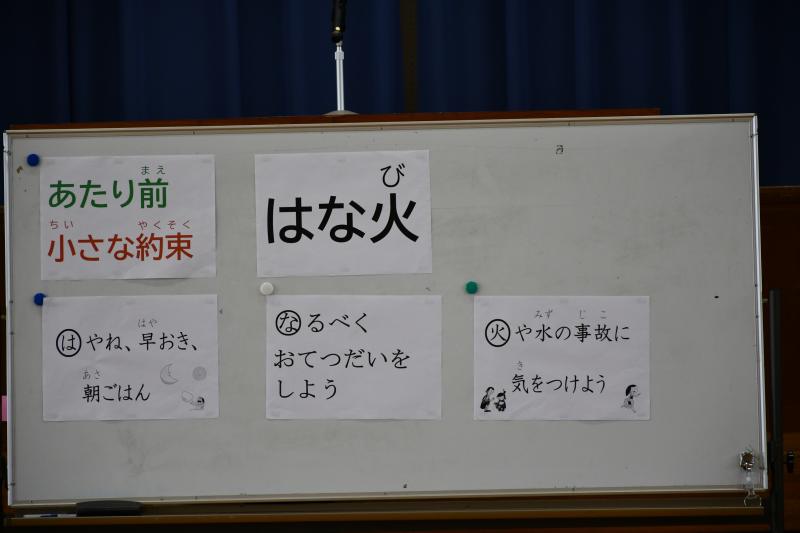 まえ
あたり前
ちい やくそく
小さな約束
び
はな火
はや
はやね、早おき、
あさ
朝ごはん
なるべく
おてつだいを
しよう
みず じこ
火や水の事故に
き
気をつけよう